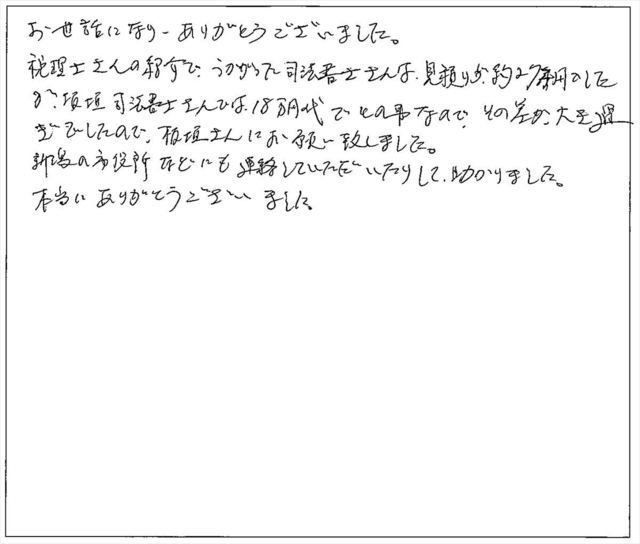 お世話になり、ありがとうございました。
税理士さんの紹介で、うかがった司法書士さんは、見積りが、約27万円でした
が、板垣司法書士さんでは、18万円代でとの事なので、その差が、大き過
ぎでしたので、板垣さんにお願い致しました。
新潟の市役所などにも連絡していただいたりして、助かりました。
本当にありがとうございました。